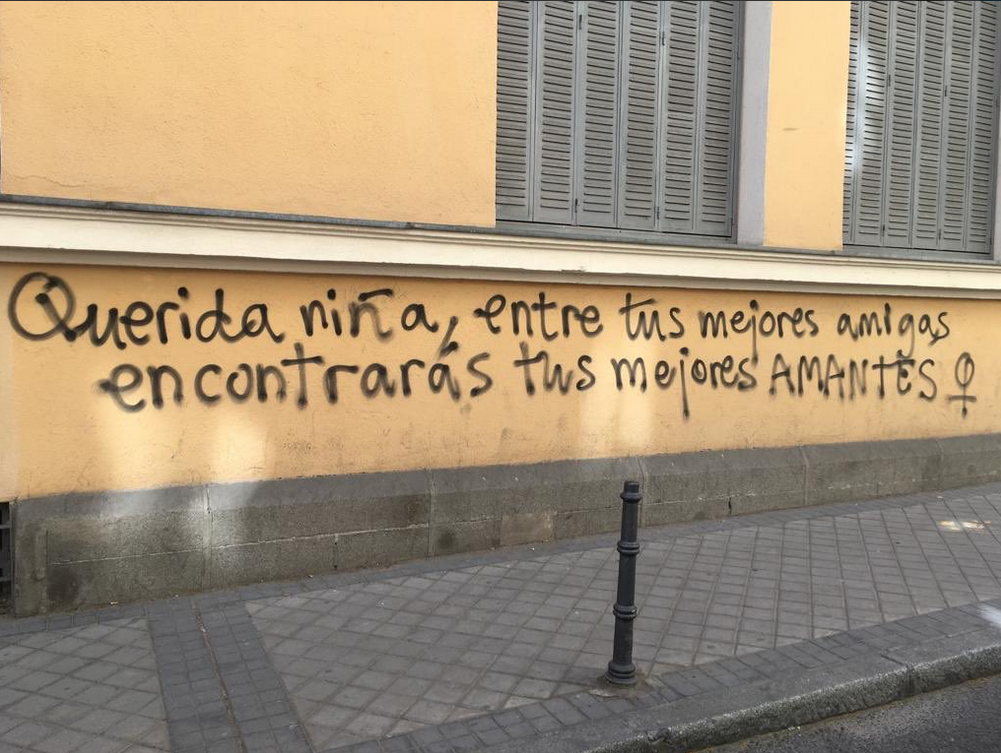 Querida niña, entre tus mejores amigas
encontrarás tus mejores AMANTES ♀